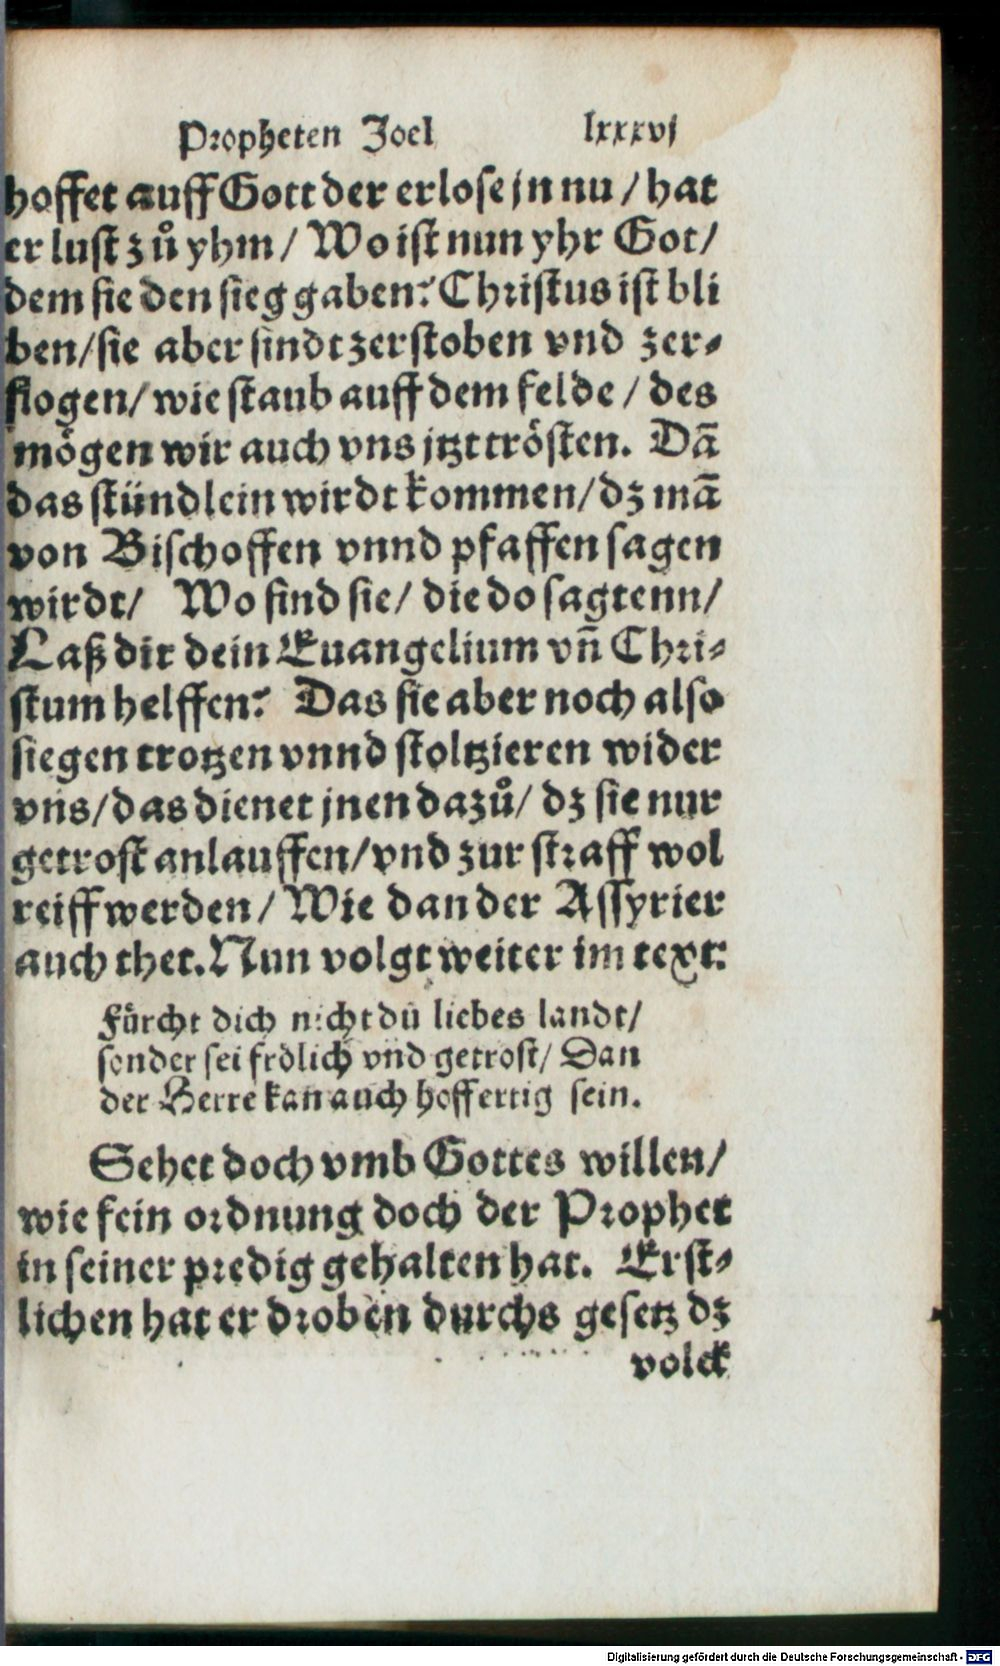 Propheten Joel lxxxvj
hoffet auff Gott der erlose jn nu / hat
er lust zů yhm / Wo ist nun yhr Got /
dem sie den sieg gaben? Christus ist bli
ben / sie aber sindt zerstoben vnd zer⸗
flogen / wie staub auff dem felde / des
mögen wir auch vns jtzt trösten. Dañ
das stündlein wirdt kommen / dz mañ
von Bischoffen vnnd pfaffen sagen
wirdt / Wo sind sie / die do sagtenn /
Laß dir dein Euangelium vñ Chri⸗
stum helffen? Das sie aber noch also
siegen trotzen vnnd stoltzieren wider
vns / das dienet jnen dazů / dz sie nur
getrost anlauffen / vnd zur straff wol
reiff werden / Wie dan der Assyrier
auch thet. Nun volgt weiter im text:
Fürcht dich nicht du liebes landt /
sonder sei frölich vnd getrost / Dan
der Herre kan auch hoffertig sein.
Sehet doch vmb Gottes willen /
wie fein ordnung doch der Prophet
in seiner predig gehalten hat. Erst⸗
lichen hat er droben durchs gesetz dz
volck
Digitalisierung gefördert durch die Deutsche Forschungsgemeinschaft - DFG